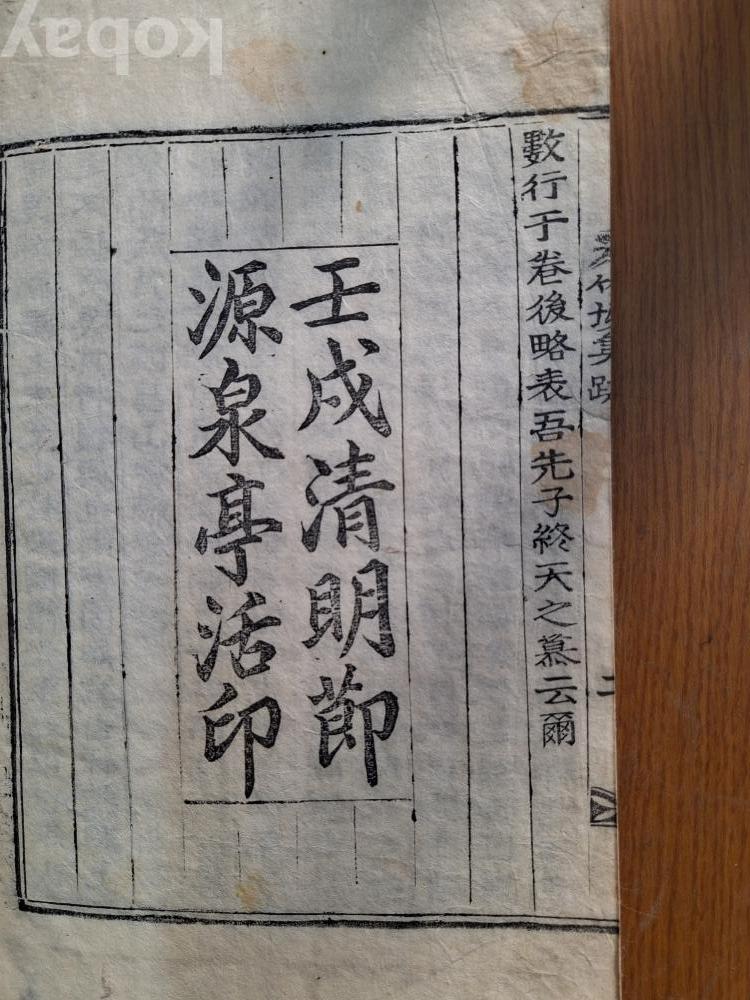 數行于卷後略表吾先子終天之慕云爾
壬戌清明節
源泉亭活印
二
kobay